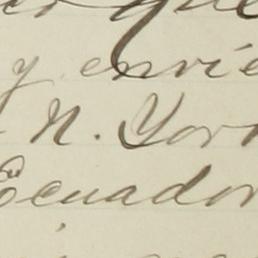 que
y envíe
N. York
Ecuador